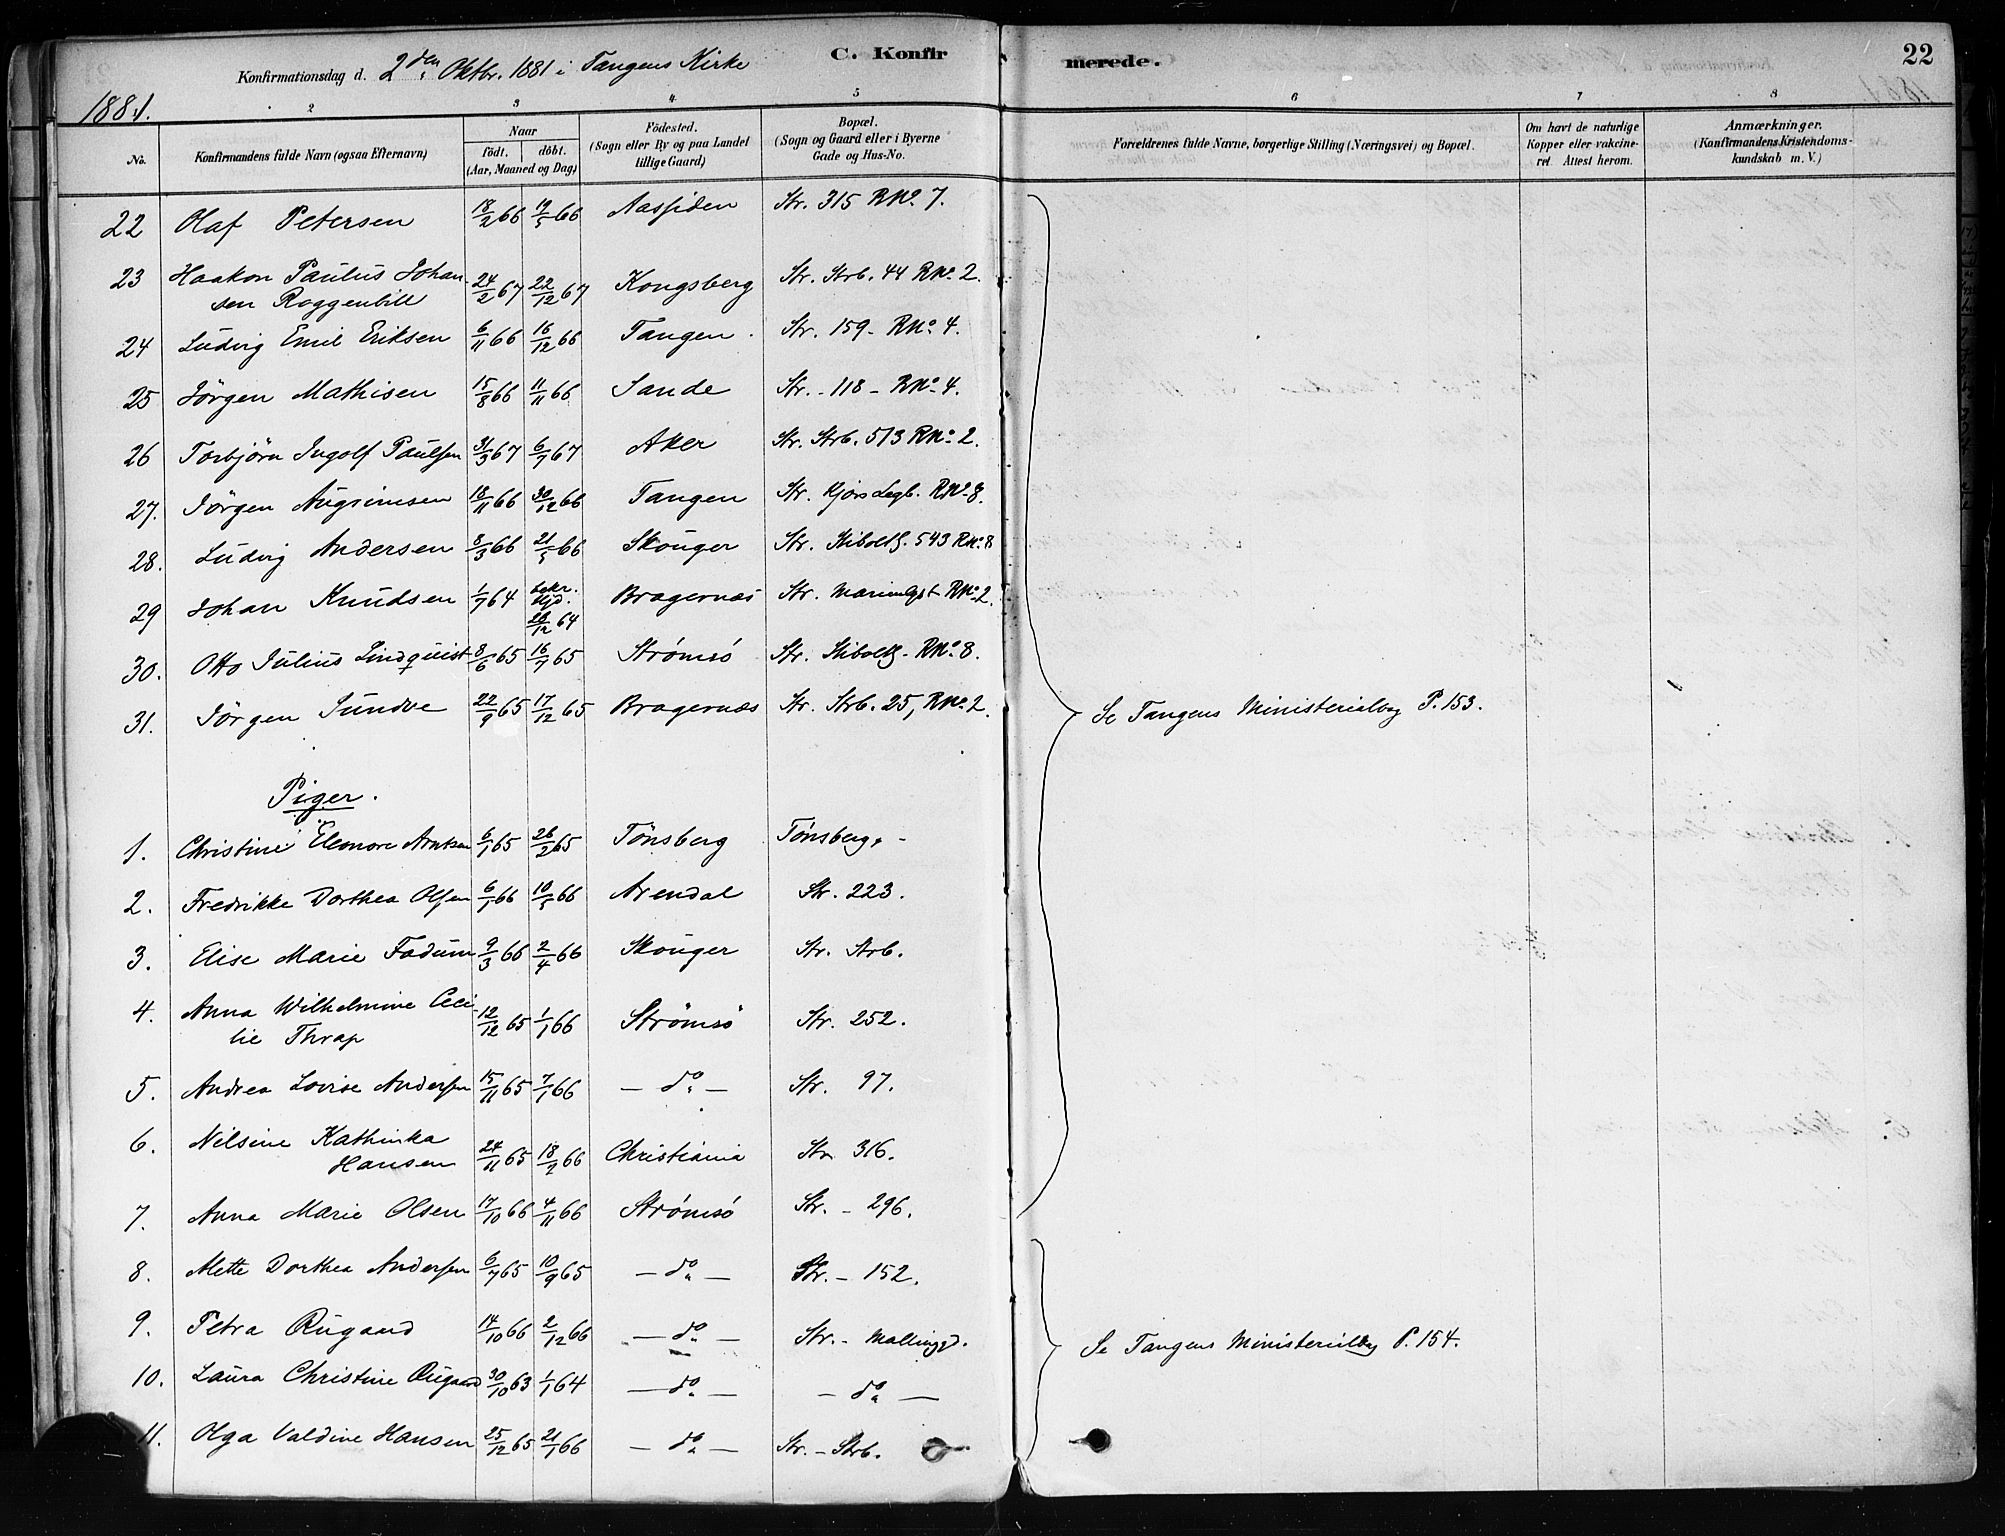 Konfirmationsdag d. 2den Oktbr. 1881 i Tangens Kirke
C. Konfirmerede.
22
1881.
2 3 4 5 6 7 8
No.
Konfirmandens fulde Navn (ogsaa Efternavn)
Naar
födt. döbt.
(Aar, Maaned og Dag)
Födested.
(Sogn eller By og paa Landet
tillige Gaard)
Bopæl.
(Sogn og Gaard eller i Byerne
Gade og Hus-No.
Forældrenes fulde Navne, borgerlige Stilling (Næringsvei) og Bopæl.
Om havt de naturlige
Kopper eller vakcine-
ret. Attest herom.
Anmærkninger.
(Konfirmandens Kristendoms-
kundskab m. V.)
22 Olaf Petersen 18/2 66 19/5 66 Aassiden Str. 315 RNo. 7.
23 Haakon Paulus Johan-
sen Roggenbill 24/2 67 22/12 67 Kongsberg Str. Strb. 44 RNo. 2.
24 Ludvig Emil Eriksen 6/11 66 16/12 66 Tangen. Str. 159 - RNo. 4.
25 Jörgen Mathisen 15/8 66 11/11 66 Sande Str. - 118 - RNo. 4.
26 Torbjörn Ingolf Paulsen 31/3 67 6/7 67 Aker Str. Strb. 513 RNo. 2.
27. Jörgen Augrimsen 18/11 66 30/12 66 Tangen Str. RNo. 8.
28. Ludvig Andersen 8/3 66 21/5 66 Skouger Str. 543 RNo. 8
29 Johan Knudsen 1/7 64 bekr.
28/12 64 Bragernæs Str. RNo. 2.
30. Otto Julius Lindquist 8/6 65 16/7 65 Strømsö Str. RNo. 8.
31. Jörgen Sundve 22/9 65 17/12 65 Bragernæs Str. Strb. 25, RNo. 2.
Se Tangens Ministerialbog P. 153.
Piger.
1. Christine Eleonore Arntsen 6/1 65 26/2 65 Tönsberg Tönsberg. -
2. Fredrikke Dorthea Olsen 6/1 66 10/5 66 Arendal Str. 223.
3. Elise Marie Fadum 9/3 66 2/4 66 Skouger Str. Strb.
4. Anna Wilhelmine Ceci-
lie Thrap 12/12 65 1/1 66 Strömsö Str. 252.
5. Andrea Lovise Andersen 15/11 65 7/1 66 - do - Str. 97.
6. Nilsine Kathinka
Hansen 24/11 65 18/2 66 Christiania Str. 316.
7. Anna Marie Olsen 17/10 66 4/11 66 Strömsö Str. - 296.
8. Mette Dorthea Andersen 6/7 65 10/9 65 - do - Str. - 152.
9. Petra Rugaard 14/10 66 2/12 66 - do - Str. - Mallingd.
Se Tangens Ministerialbog P. 154.
10. Laura Christine Rugaard 30/10 63 1/1 64 - do - - do -
11. Olga Valdine Hansen 25/12 65 21/1 66 - do - Str. - Strb.